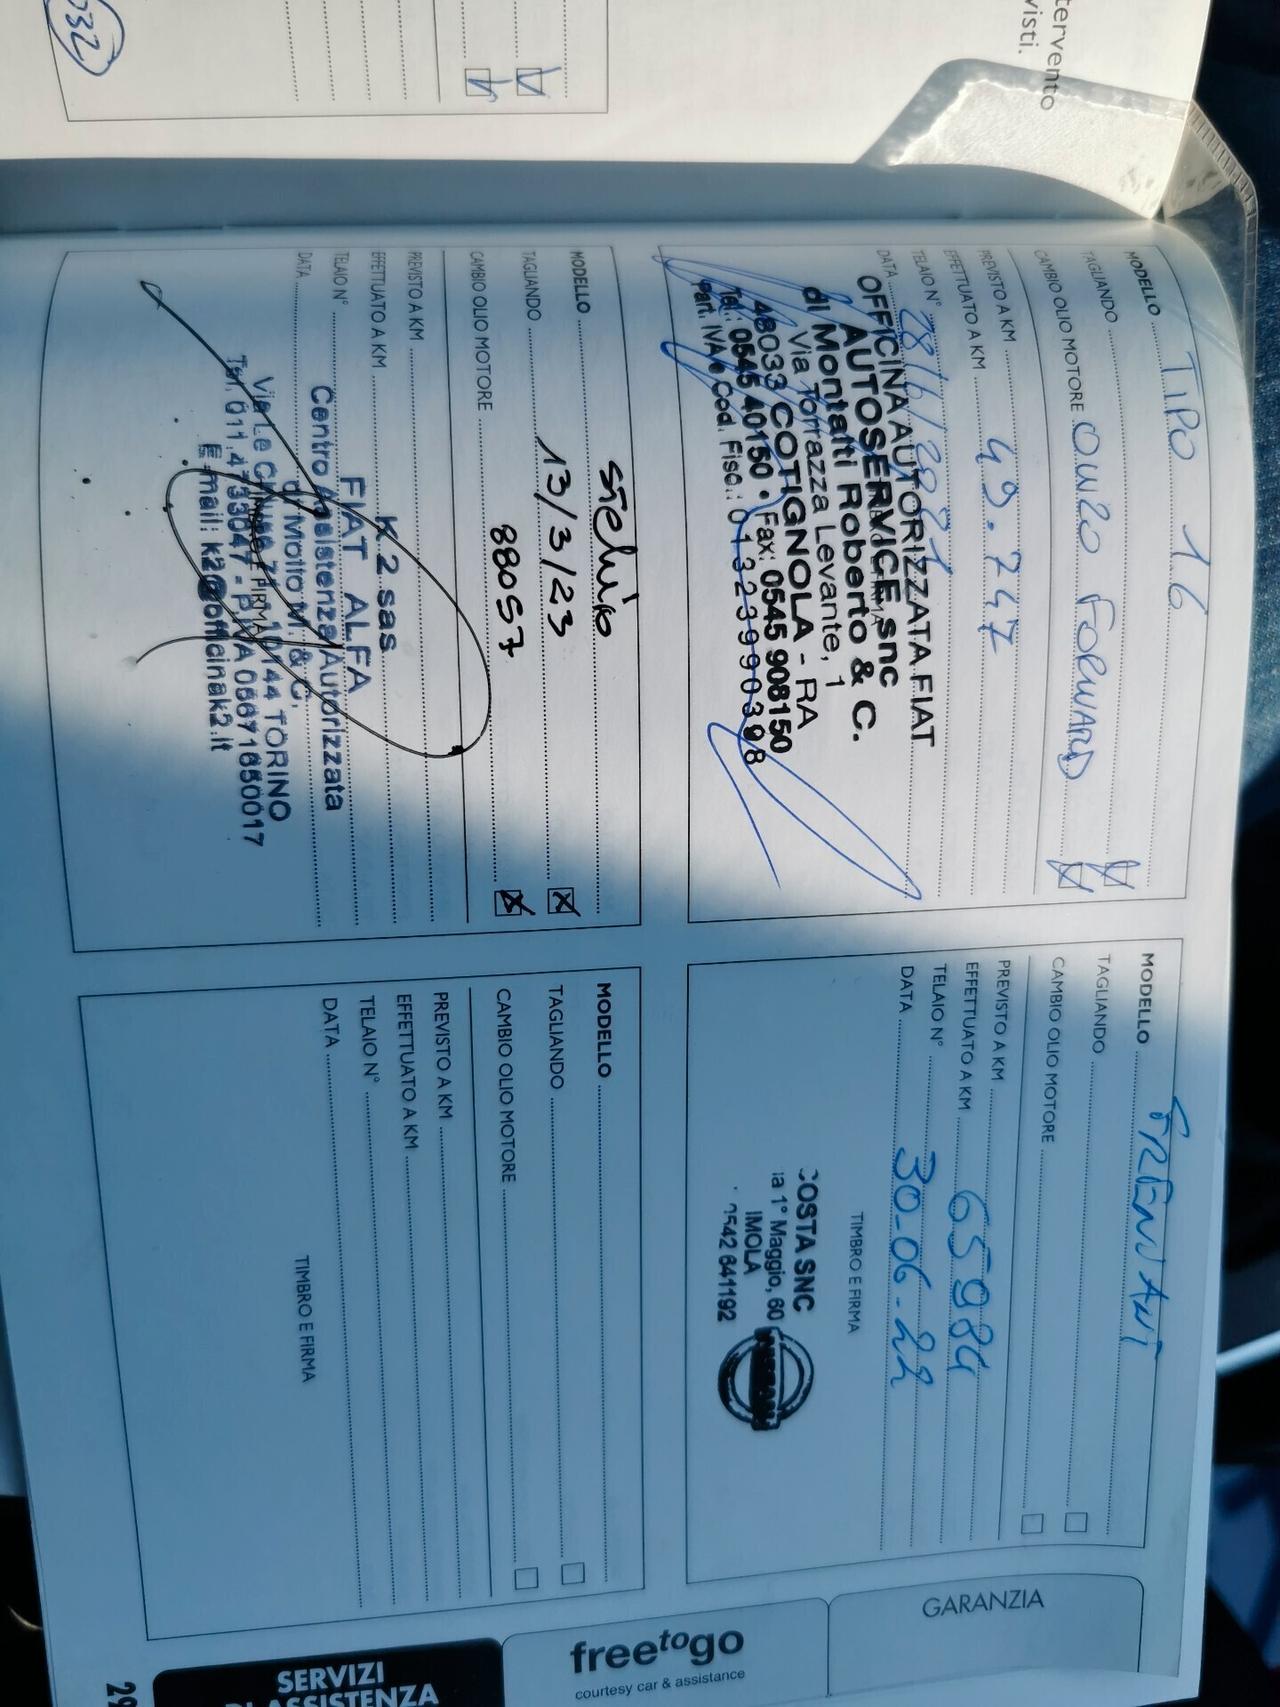 tervento
visti.
032
MODELLO TIPO 16
TAGLIANDO
CAMBIO OLIO MOTORE FORWARD
PREVISTO A KM
EFFETTUATO A KM 49.747
TELAIO N°
DATA
OFFICINA AUTORIZZATA FIAT
AUTOSERVICE snc
di Montatti Roberto & C.
Via Torrazza Levante, 1
48033 COTIGNOLA - RA
Tel.: 0545 40150 • Fax: 0545 908150
Part. IVA e Cod. Fisc.: 01323990398
MODELLO
TAGLIANDO
CAMBIO OLIO MOTORE
PREVISTO A KM
EFFETTUATO A KM 65984
TELAIO N°
DATA 30-06-22
TIMBRO E FIRMA
COSTA SNC
ia 1° Maggio, 60
IMOLA
0542 641192
MODELLO Stelvio
TAGLIANDO 13/3/23
CAMBIO OLIO MOTORE 88057
PREVISTO A KM
EFFETTUATO A KM
TELAIO N°
DATA
K 2 sas
FIAT ALFA
Centro Assistenza Autorizzata
di Motto M. & C.
10144 TORINO
P.IVA 05671650017
E-mail: k2@officinak2.it
MODELLO
TAGLIANDO
CAMBIO OLIO MOTORE
PREVISTO A KM
EFFETTUATO A KM
TELAIO N°
DATA
TIMBRO E FIRMA
GARANZIA
freetogo
courtesy car & assistance
SERVIZI
DI ASSISTENZA
29